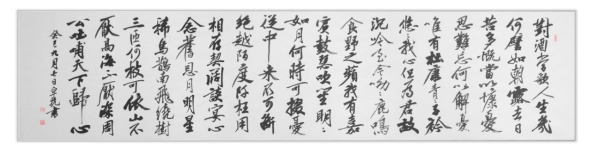 對酒當歌人生幾
何譬如朝露去日
苦多慨當以慷憂
思難忘何以解憂
唯有杜康青々子衿
悠々我心但為君故
沉吟至今呦々鹿鳴
食野之蘋我有嘉
賓鼓瑟吹笙明々
如月何時可掇憂
從中來不可斷
絕越陌度阡枉用
相存契闊談宴心
念舊恩月明星
稀烏鵲南飛繞樹
三匝何枝可依山不
厭高海不厭深周
公吐哺天下歸心
癸巳九月書